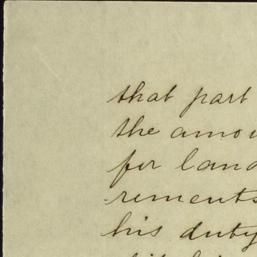 that part
the amou
for land
rements
his duty